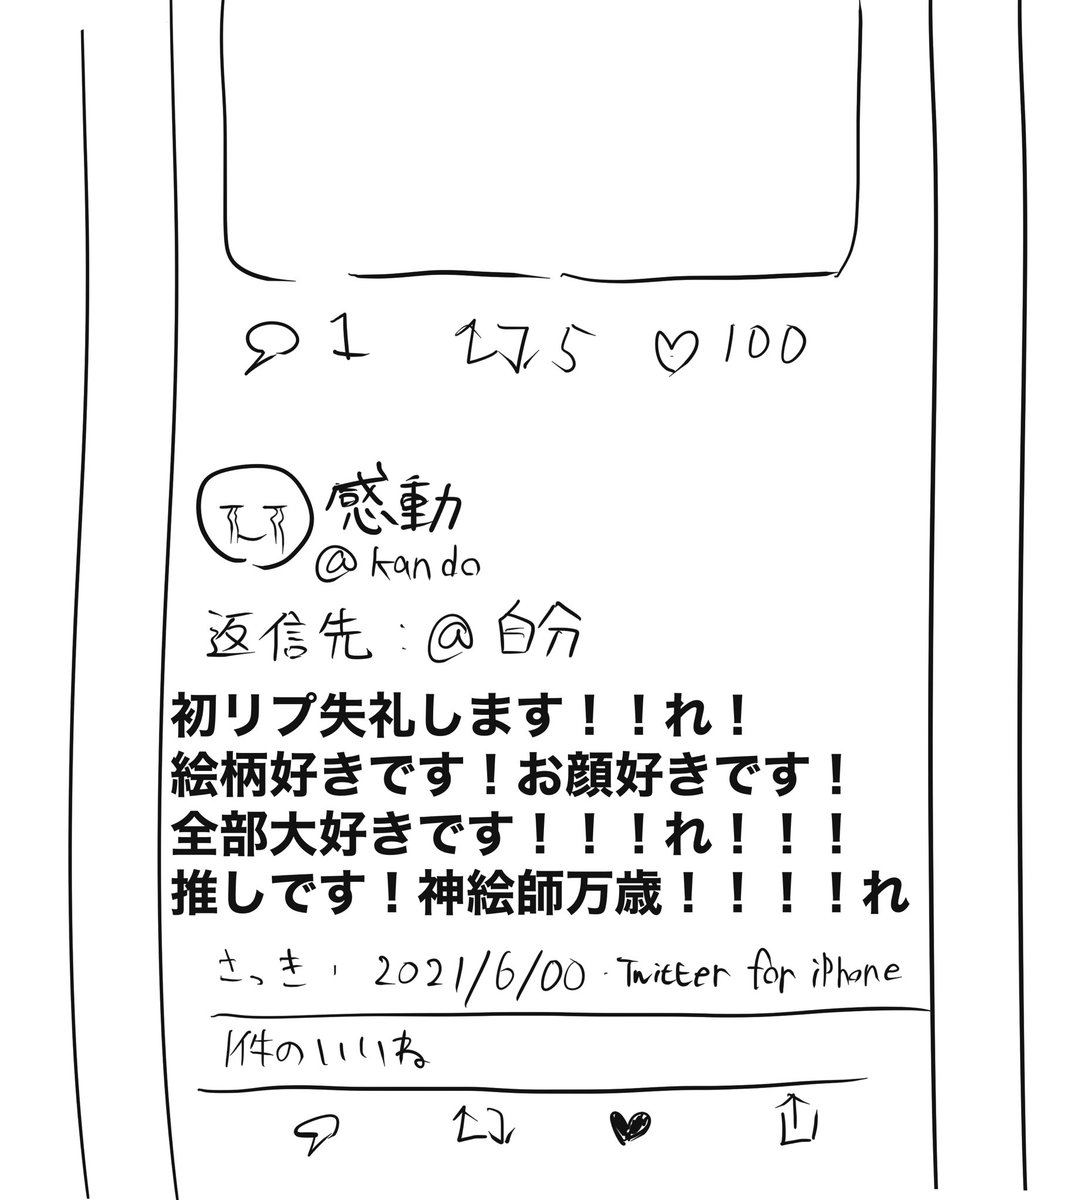 1 5 100
感動
@kando
返信先:@自分
初リプ失礼します！！れ！
絵柄好きです！お顔好きです！
全部大好きです！！！れ！！！
推しです！神絵師万歳！！！！れ
さっき・2021/6/00・Twitter for iPhone
1件のいいね